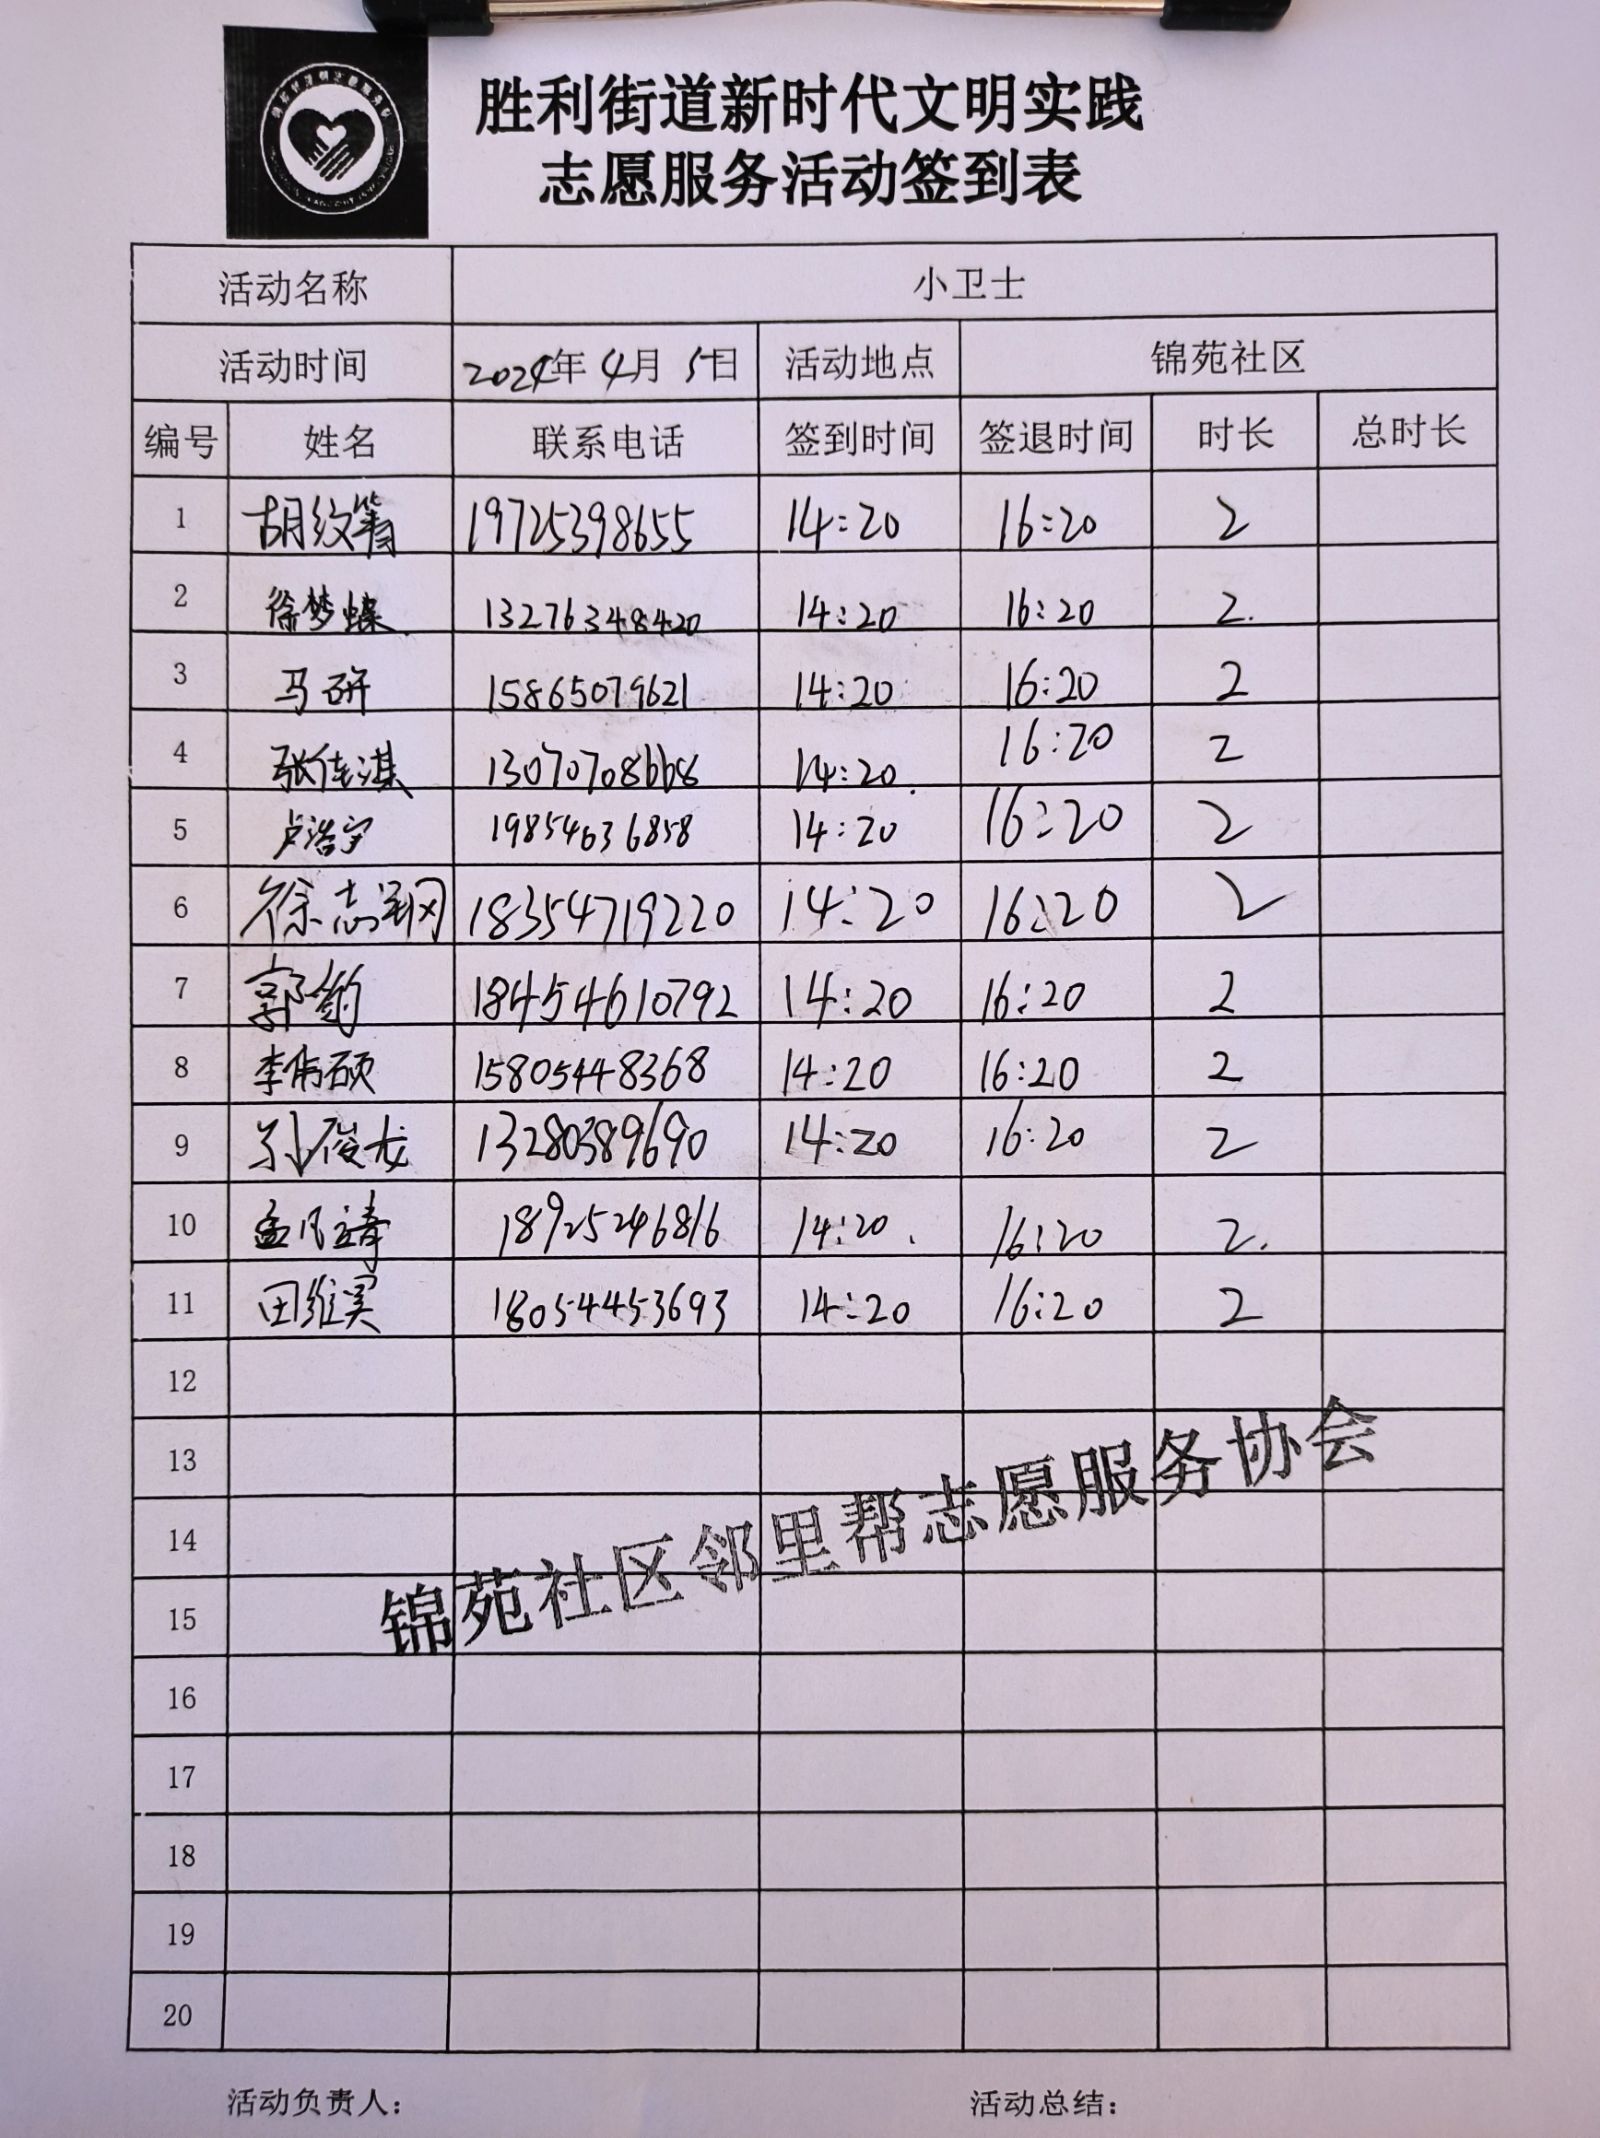 胜利街道新时代文明实践
志愿服务活动签到表
活动名称 小卫士
活动时间 2024年 4月 5日 活动地点 锦苑社区
编号 姓名 联系电话 签到时间 签退时间 时长 总时长
1 胡纹箐 19725398655 14:20 16:20 2
2 徐梦蝶 13276348420 14:20 16:20 2.
3 马研 15865079621 14:20 16:20 2
4 张佳淇 13070708668 14:20. 16:20 2
5 卢浩宇 19854636858 14:20 16:20 2
6 徐志钢 18354719220 14:20 16:20 2
7 郭钧 18454610792 14:20 16:20 2
8 李伟硕 15805448368 14:20 16:20 2
9 孙俊龙 13280389690 14:20 16:20 2
10 孟凡靖 18925246816 14:20. 16:20 2.
11 田维昊 18054453693 14:20 16:20 2
12
13
14
15
锦苑社区邻里帮志愿服务协会
16
17
18
19
20
活动负责人： 活动总结：